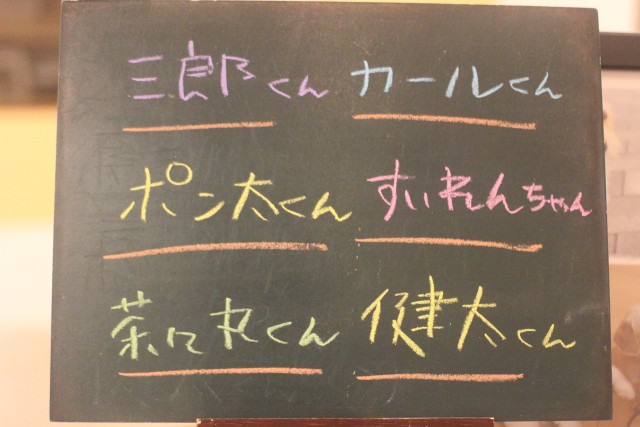 三郎くん カールくん
ポン太くん すいれんちゃん
茶々丸くん 健太くん